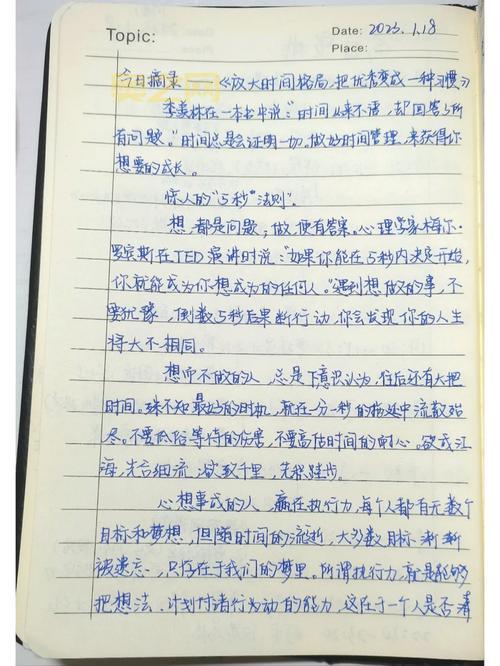 Topic:
Date: 2023.1.18
Place:
今日摘录——《放大时间格局,把优秀变成一种习惯》
李美林在一本书中说:"时间从来不语,却回答了所
有问题。"时间总是会证明一切。做好时间管理,来获得你
想要的成长。
惊人的"5秒"法则"。
想,都是问题,做,便有答案。心理学家梅尔·
罗宾斯在TED演讲时说:"如果你能在5秒内决定开始,
你就能成为你想成为的任何人。"遇到想做的事,不
要犹豫,倒数5秒后果断行动,你会发现你的人生
将大不相同。
想而不做的人,总是下意识认为,往后还有大把
时间。殊不知最好的时机,就在一分一秒的拖延中流散殆
尽。不要低估等待的伤害,不要高估时间的耐心。欲成江
海,先合细流,欲致千里,先积跬步。
心想事成的人,赢在执行力,每个人都有无数个
目标和梦想,但随时间的流逝,大多数目标渐渐
被遗忘,只存在于我们的梦里。所谓执行力,就是能够
把想法、计划付诸行为动的能力,这在于一个人是否有